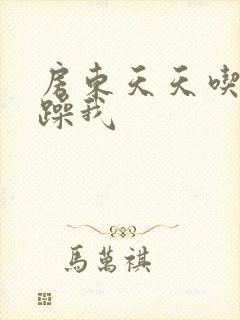 房東天天喫
躁我
馬萬祺